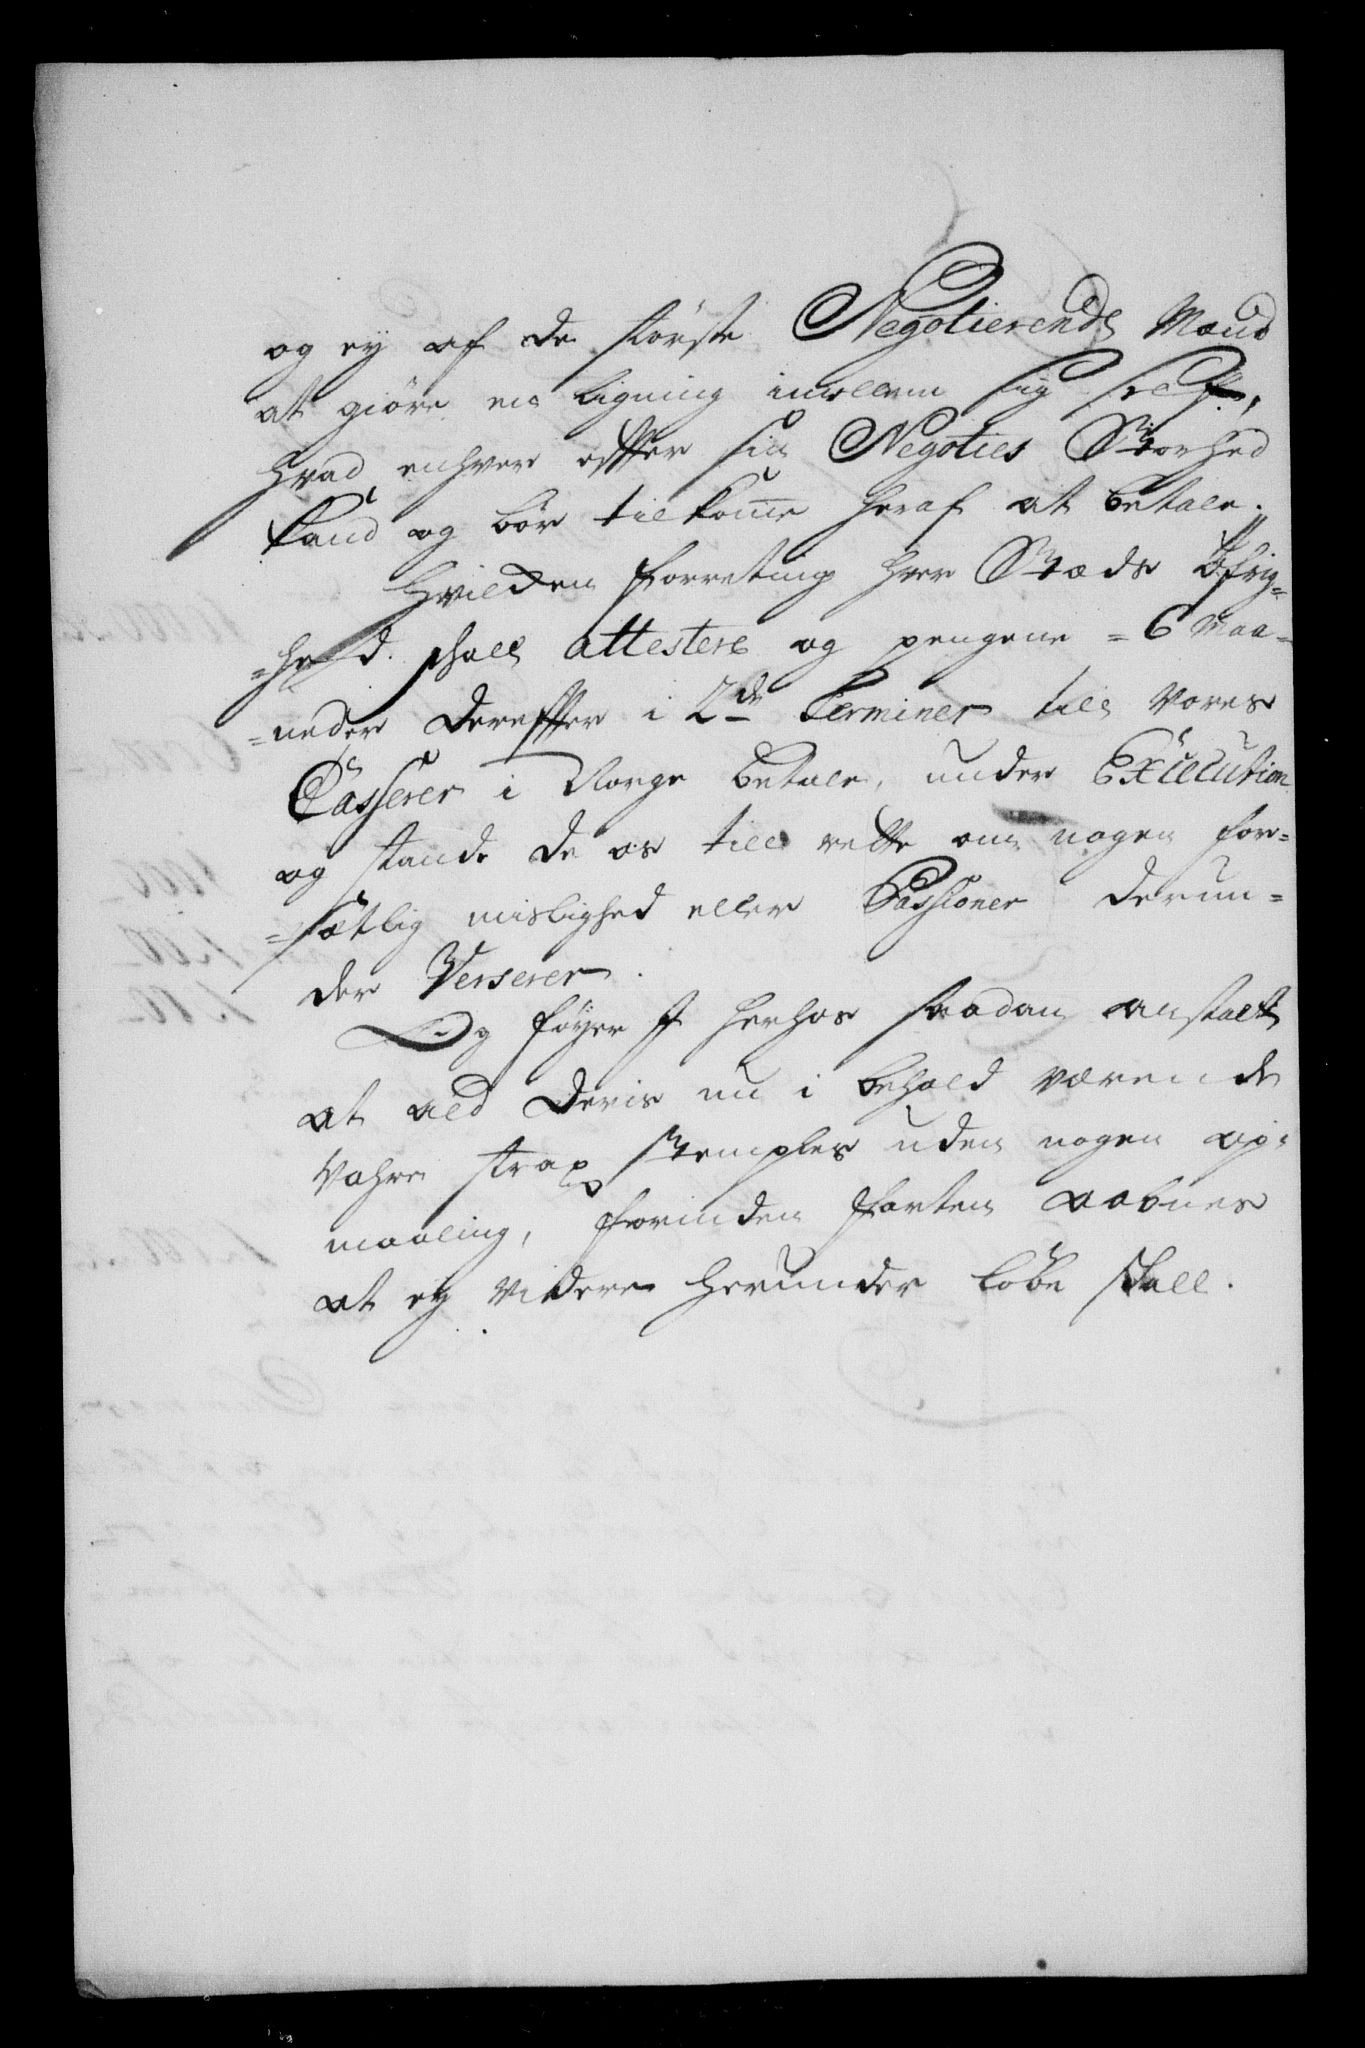 og ey af de störste Negotierende Mænd
at giöre en ligning imellem sig self,
hvad enhver effter sin Negoties Storhed
kand og bör tilkomme heraf at betale.
Hvilken forretning hver Stæds Öfrig=
=hed skall attestere og pengene = 6 Maa=
=neder dereffter i 2de Terminer till vores
Casserer i Norge betale, under Execution
og stande de os till rette om nogen for=
=sætlig mislighed eller Passioner derun=
der Verserer.
Og föyer I herhos saadan anstalt
at ald deris nu i behold værende
Vahre strax stemples uden nogen op=
maaling, forinden farten aabnes
at ey videre herunder löbe skall.